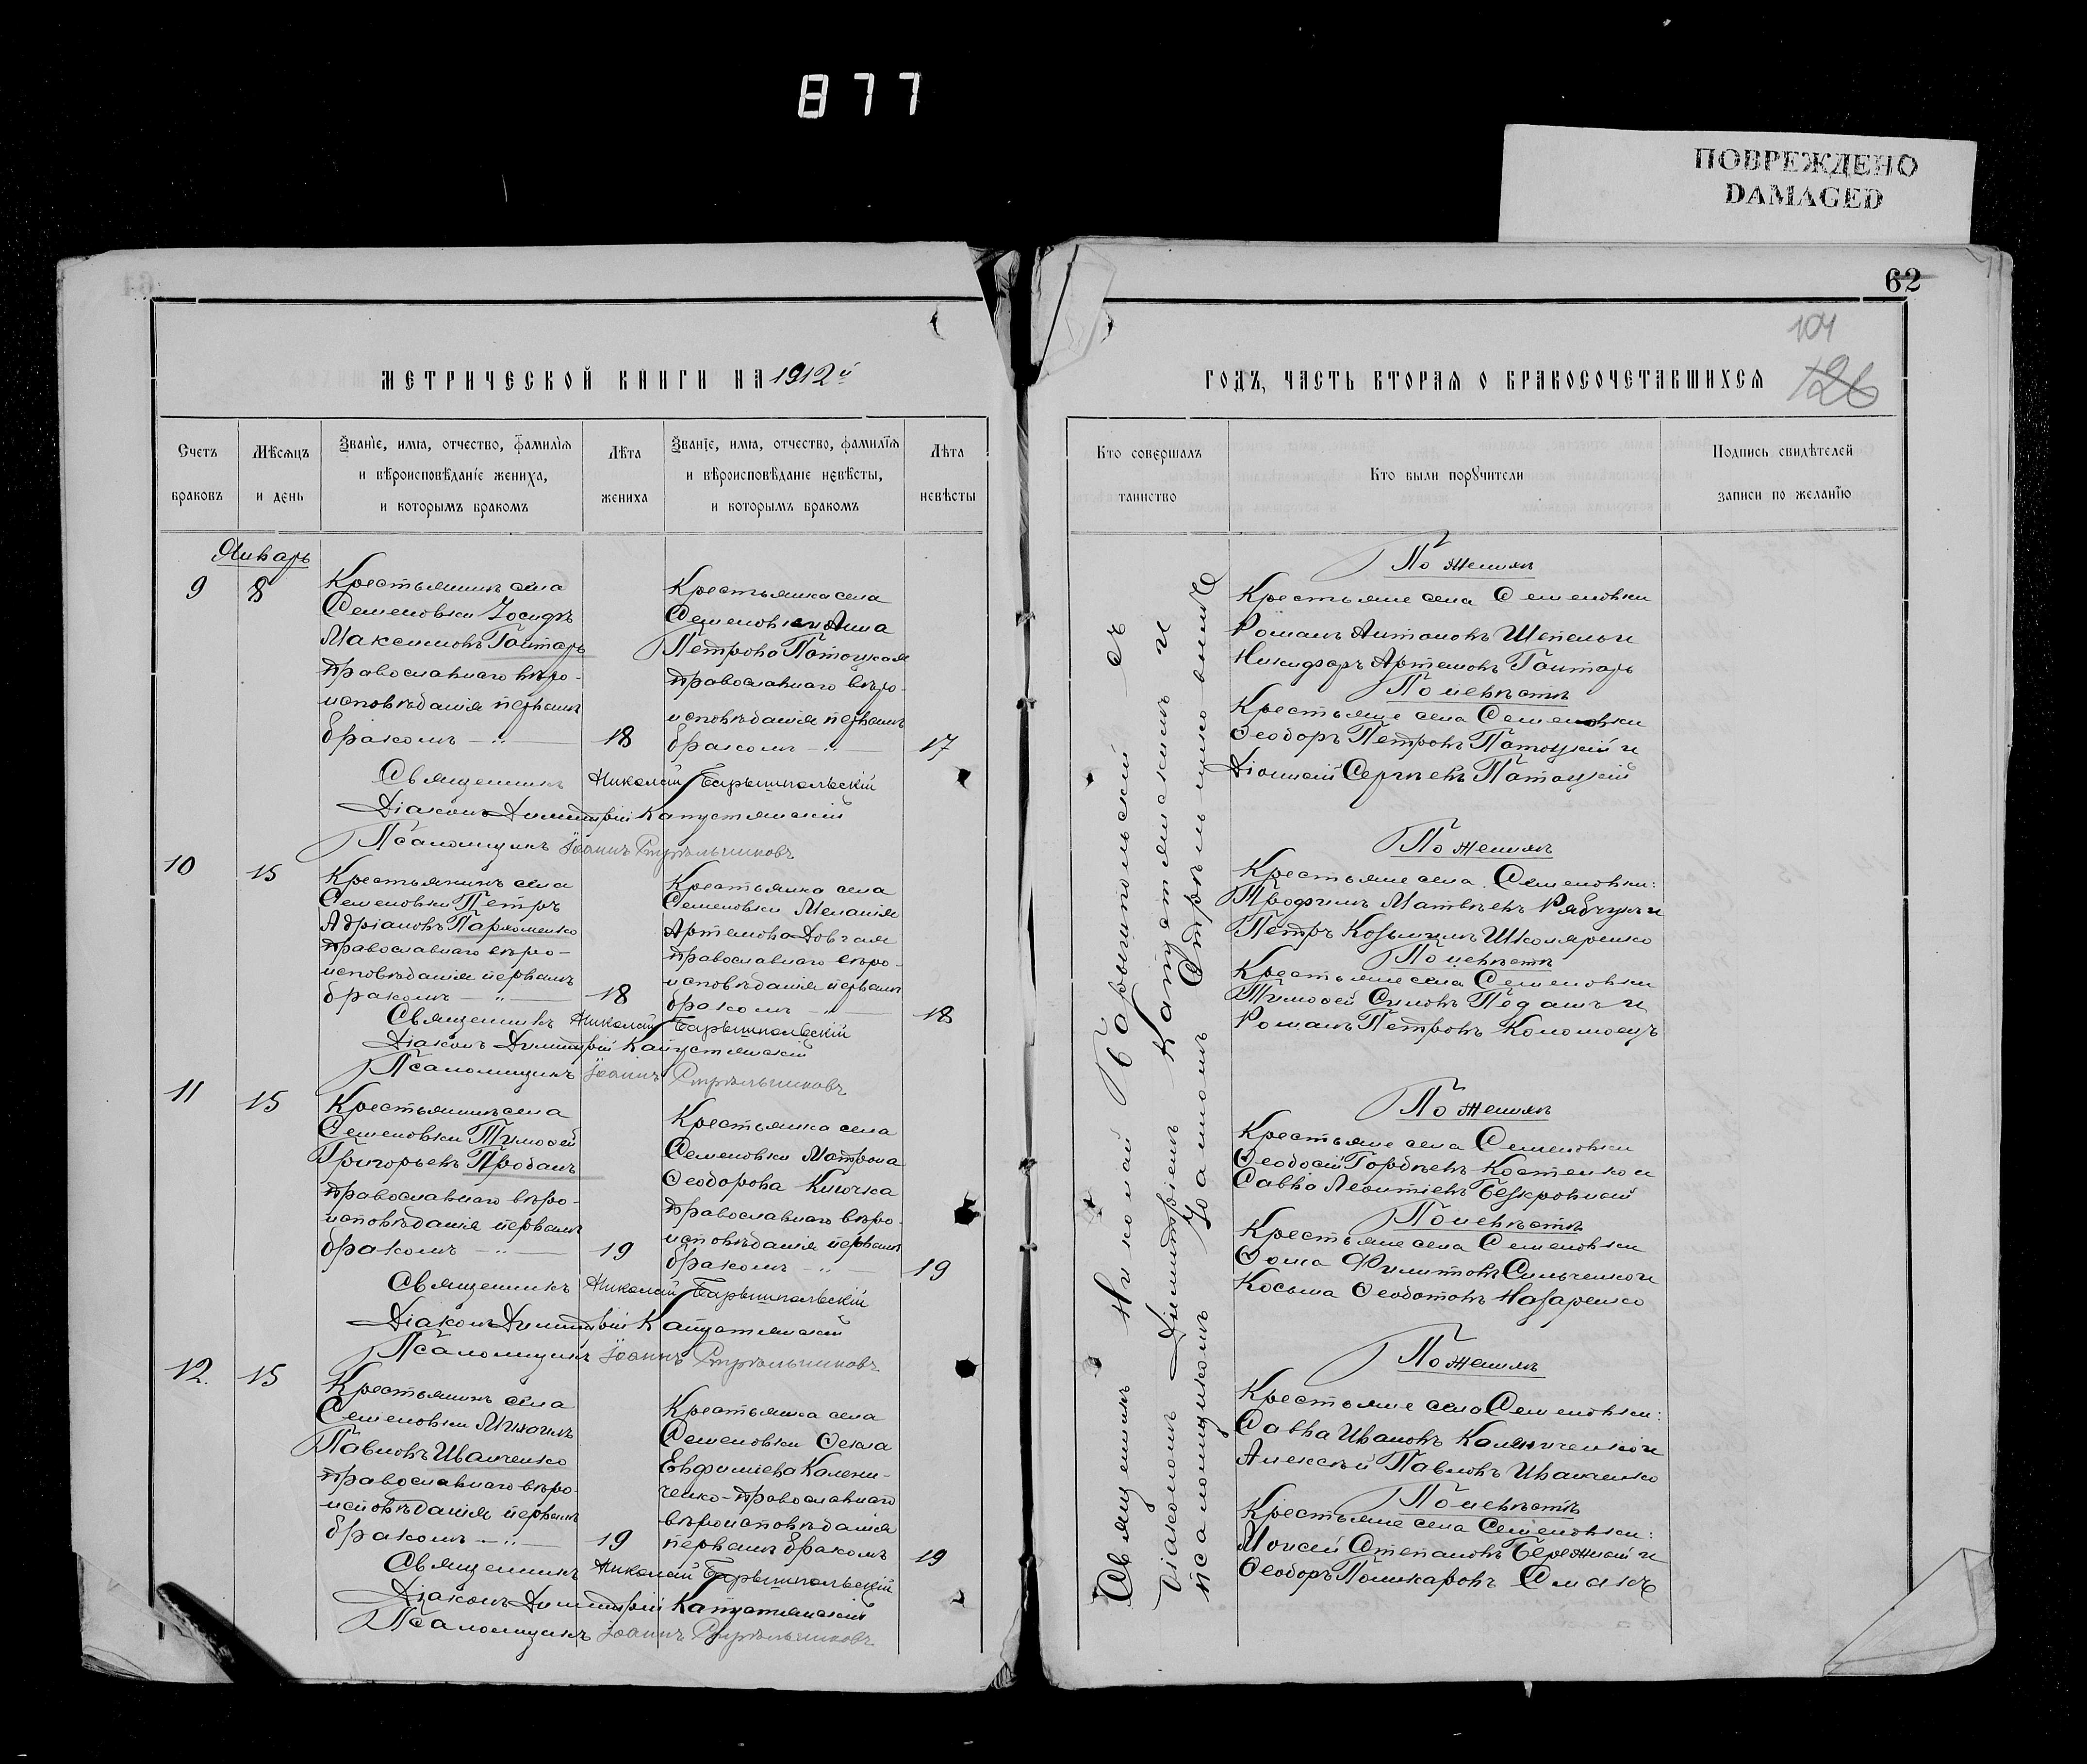 877
ПОВРЕЖДЕНО
DAMAGED
62
104
126
МЕТРИЧЕСКОЙ КНИГИ НА 1912й
ГОДЪ, ЧАСТЬ ВТОРАЯ О БРАКОСОЧЕТАВШИХСЯ
Счетъ браковъ
Мѣсяцъ и день
Званіе, имя, отчество, фамилія
и вѣроисповѣданіе жениха,
и которымъ бракомъ
Лѣта жениха
Званіе, имя, отчество, фамилія
и вѣроисповѣданіе невѣсты,
и которымъ бракомъ
Лѣта невѣсты
Кто совершалъ таинство
Кто были поручители
Подпись свидѣтелей записи по желанію
Январь
9
8
Крестьянинъ села
Семеновки Іосифъ
Максимовъ Гонтарь
православнаго вѣро-
исповѣданія первымъ
бракомъ — „ —
18
Крестьянка села
Семеновки Анна
Петрова Потоцкая
православнаго вѣро-
исповѣданія первымъ
бракомъ — „ —
17
Священникъ Николай Барышпольскій
Діаконъ Димитрій Капустянскій
Псаломщикъ Іоаннъ Стрѣльниковъ
10
15
Крестьянинъ села
Семеновки Петръ
Адріановъ Пархоменко
православнаго вѣро-
исповѣданія первымъ
бракомъ — „ —
18
Крестьянка села
Семеновки Меланія
Артемова Довгая
православнаго вѣро-
исповѣданія первымъ
бракомъ — „ —
18
Священникъ Николай Барышпольскій
Діаконъ Димитрій Капустянскій
Псаломщикъ Іоаннъ Стрѣльниковъ
11
15
Крестьянинъ села
Семеновки Тимоѳей
Григорьевъ Проданъ
православнаго вѣро-
исповѣданія первымъ
бракомъ — „ —
19
Крестьянка села
Семеновки Матрона
Ѳеодорова Клочка
православнаго вѣро-
исповѣданія первымъ
бракомъ — „ —
19
Священникъ Николай Барышпольскій
Діаконъ Димитрій Капустянскій
Псаломщикъ Іоаннъ Стрѣльниковъ
12.
15
Крестьянинъ села
Семеновки Михаилъ
Павловъ Иванченко
православнаго вѣро-
исповѣданія первымъ
бракомъ — „ —
19
Крестьянка села
Семеновки Ѳекла
Евфиміева Калени-
ченко православнаго
вѣроисповѣданія
первымъ бракомъ
19
Священникъ Николай Барышпольскій
Діаконъ Димитрій Капустянскій
Псаломщикъ Іоаннъ Стрѣльниковъ
Священникъ Николай Барышпольскій съ
Діакономъ Димитріемъ Капустянскимъ и
псаломщикомъ Іоанномъ
По женихѣ
Крестьяне села Семеновки
Романъ Антоновъ Шепель и
Никифоръ Артемовъ Гонтарь
По невѣстѣ
Крестьяне села Семеновки
Ѳеодоръ Петровъ Потоцкій и
Діонисій Сергѣевъ Потоцкій
По женихѣ
Крестьяне села Семеновки:
Трофимъ Матвѣевъ Рябчукъ и
Петръ Козьминъ Школяренко
По невѣстѣ
Крестьяне села Семеновки
Тимоѳей Симовъ Педашъ и
Романъ Петровъ Коломоецъ
По женихѣ
Крестьяне села Семеновки
Ѳеодосій Гордѣевъ Костенко и
Савва Леонтіевъ Безкровный
По невѣстѣ
Крестьяне села Семеновки
Ѳома Филиповъ Сильченко и
Косьма Ѳеодотовъ Назаренко
По женихѣ
Крестьяне села Семеновки:
Савва Ивановъ Калениченко и
Алексѣй Павловъ Иванченко
По невѣстѣ
Крестьяне села Семеновки:
Моисей Степановъ Бережный и
Ѳеодоръ Поликарповъ Смакъ